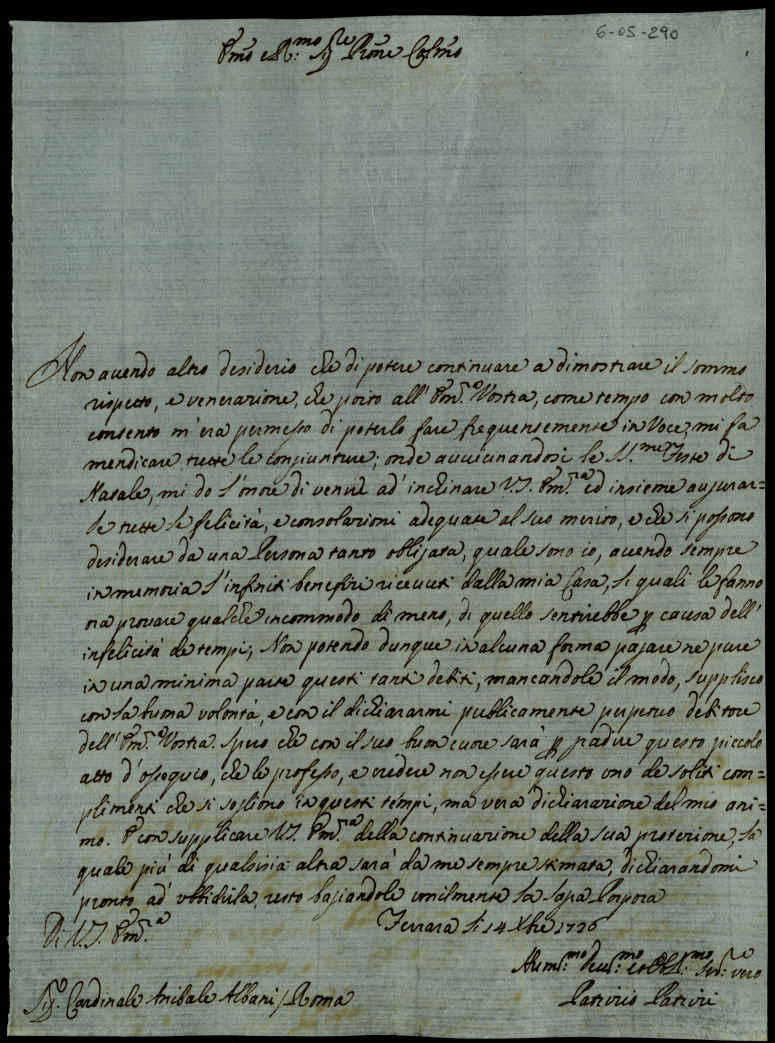 6-05-290
Emo e R:mo Sigre Prone Colmo
Non auendo altro desiderio che di potere continuare a dimostrare il sommo
rispetto, e venerazione, che porto all' Em:a Vostra, come tempo con molto
contento m' era permesso di poterlo fare frequentemente in Voce, mi fa
mendicare tutte le congiunture; onde auuicinandosi le SS.me Feste di
Natale, mi do l'onore di venire ad' inclinare V.S. Em:ra ed insieme augurar=
le tutte le felicità, e consolazioni adequate al suo merito, e che si possono
desiderare da una Persona tanto obligata, quale sono io, auendo sempre
in memoria l'infiniti benefizi riceuuti dalla mia Casa, li quali le fanno
ora prouare qualche incommodo di meno, di quello sentirebbe p causa dell'
infelicità de tempi; Non potendo dunque in alcuna forma pagare ne pure
in una minima parte questi tanti debiti, mancandole il modo, supplisco
con la buona volontà, e con il dichiararmi publicamente perpetuo debitore
dell' Em:a Vostra. Spero che con il suo buon cuore sarà p gradire questo piccolo
atto d'ossequio, che le professo, e credere non essere questo uno de soliti com=
plimenti che si sogliono in questi tempi, ma vera dichiarazione del mio ani=
mo. E con supplicare V.S. Em:ra della continuazione della sua protezione, la
quale più di qualsisia altra sarà da me sempre stimata, dichiarandomi
pronto ad' ubbidirla, resto bagiandole umilmente la sagra Porpora
Di V.S. Em:a Ferrara li 14 Xbre 1726
Hum:mo Deu:mo et Obl:mo Ser:re vero
Sigr. Cardinale Anibale Albani / Roma Patrizio Patrizi